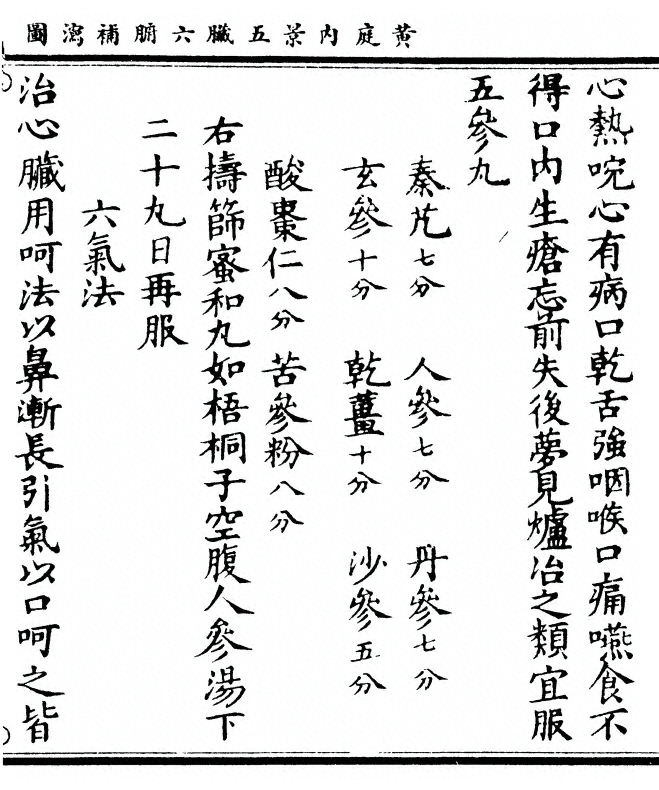 黃庭內景五臟六腑補瀉圖
心熱啘心有病口乾舌強咽喉口痛嚥食不
得口內生瘡忘前失後夢見爐冶之類宜服
五參丸
秦艽七分 人參七分 丹參七分
玄參十分 乾薑十分 沙參五分
酸棗仁八分 苦參粉八分
右擣篩蜜和丸如梧桐子空腹人參湯下
二十丸日再服
六氣法
治心臟用呵法以鼻漸長引氣以口呵之皆